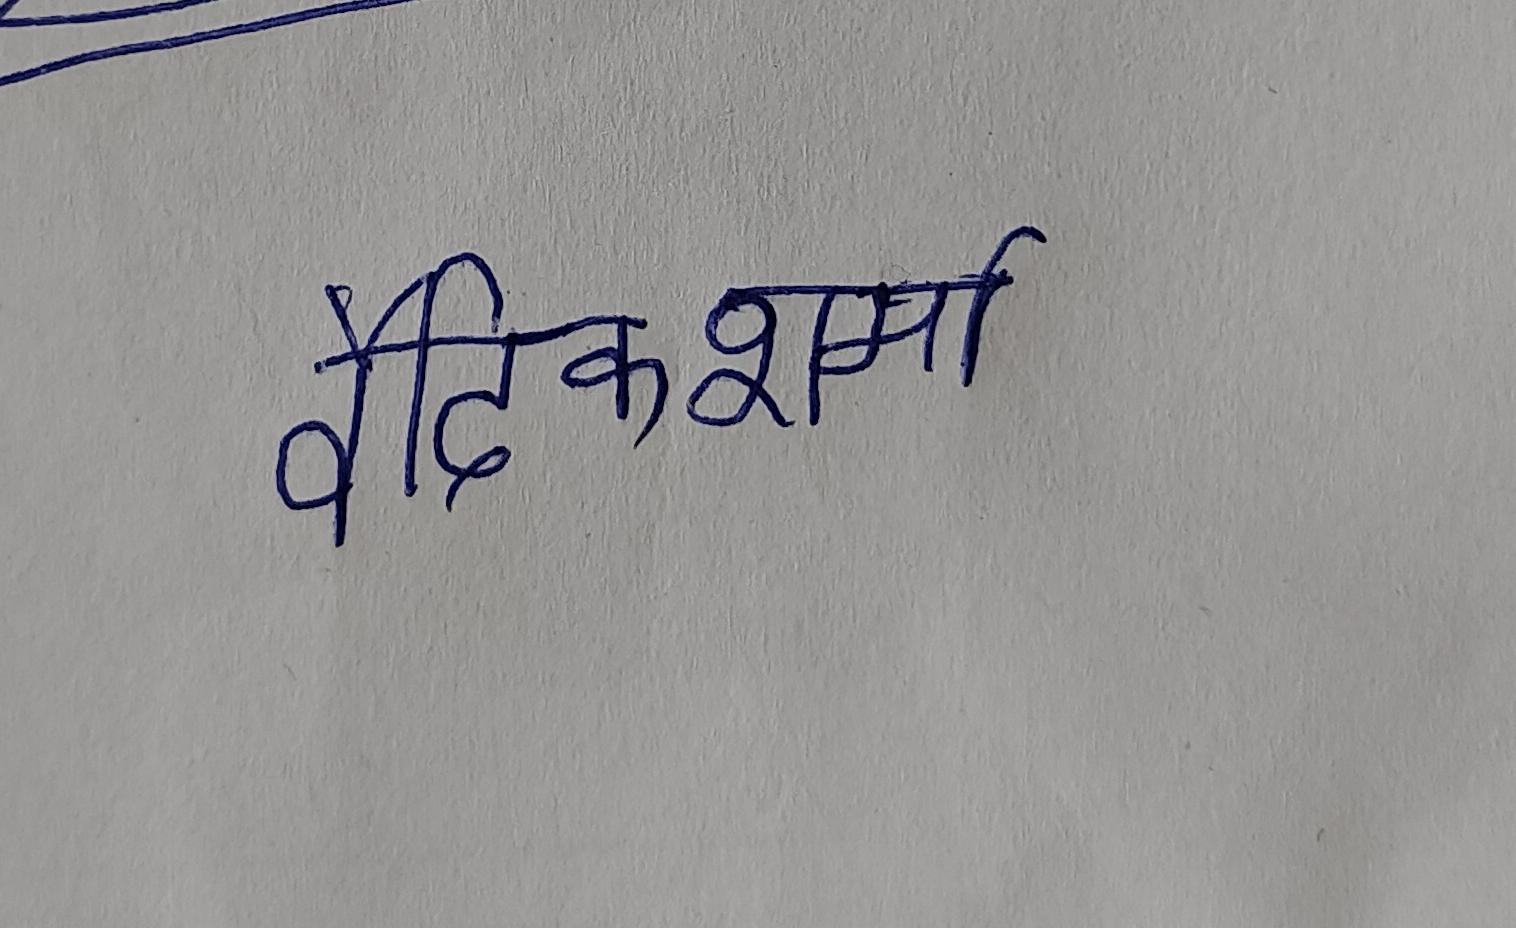 वैदिक शर्मा